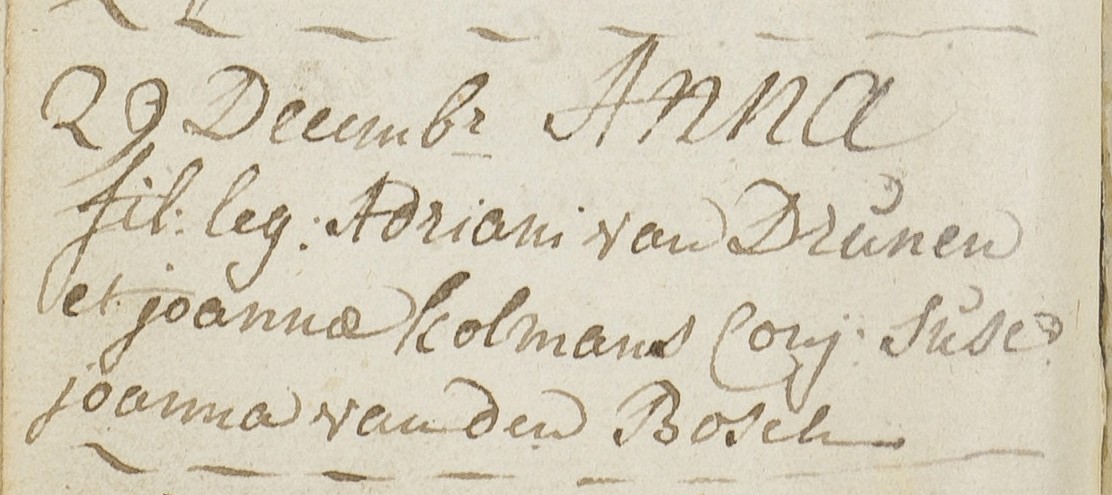 29 Decembr Anna
fil: leg: Adriani van Drŭnen
et joannæ Kolmans Conj: Sŭsc:
joanna van den Bosch